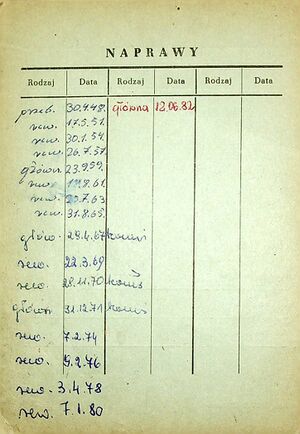 NAPRAWY
Rodzaj Data Rodzaj Data Rodzaj Data
przeb. 30.4.48. główna 12.06.82
rew. 17.5.51.
rew. 30.1.54.
rew. 26.7.57.
główn. 23.9.59.
rew. 8.61.
rew. 7.63
rew. 31.8.65.
głów. 29.4.67
rew. 22.3.69
rew. 28.11.70
główn 31.12.71
rew. 7.2.74
rew. 5.2.76
rew. 3.4.78
rew. 7.1.80